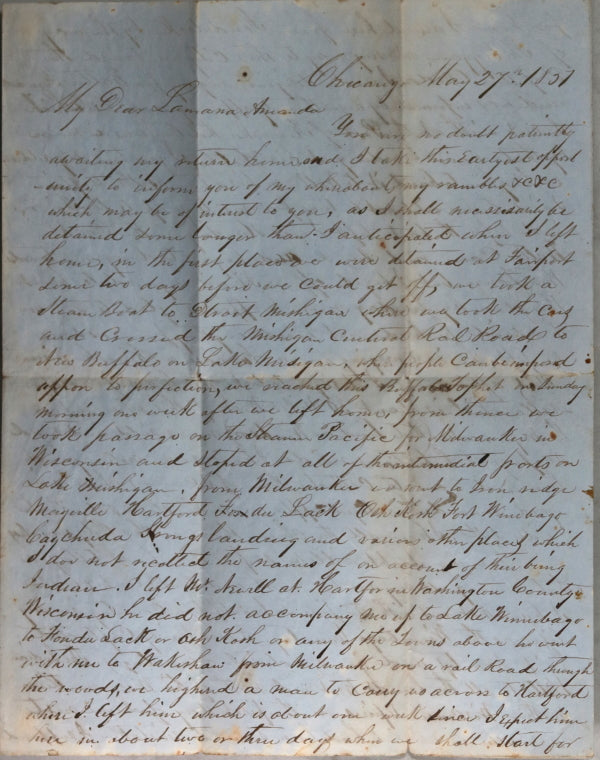 Chicago May 27th 1851
My Dear Lamana Amanda
You are no doubt patiently
awaiting my return home and I take this Earlyest oppert
-unity to inform you of my whereabouts, my rambles &c &c
which may be of intrest to you, as I shall necessiarily be
detained some longer than I anticipated when I left
home, in the first place we were detained at Fairport
some two days before we could get off, we took a
Steam Boat to Detroit Michigan where we took the Cars
and Crossed the Michigan Central Rail Road to
New Buffalo on Lake Misigan, where people Can be imposd
uppon to perfection, we reached this Buffalo on Sunday
morning one week after we left home, from thence we
took passage on the Steamer Pacific for Milwaukee in
Wisconsin and stoped at all of the intermidial ports on
Lake Mishigan, from Milwaukee we went to Iron ridge
Mayville Hartford Fon du Lack Osh Kosh Fort Winebago
landing and various other places which
I doe not recollect the names of on account of their being
Indian. I left Mr. Newell at Hartford in Washington County
Wisconsin he did not accompany me up to Lake Winnebago
to Fondu Lack or Osh Kosh or any of the Towns above he went
with me to Wakeshaw from Milwaukee on a rail Road through
the woods, we highered a man to Carry us across to Hartford
where I left him which is about one week since I expect him
here in about two or three days when we shall start for